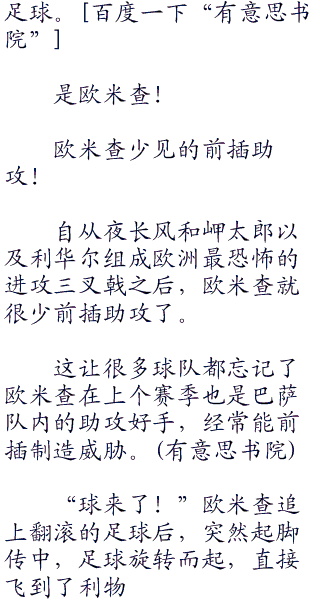 足球。[百度一下“有意思书
院”]
是欧米查！
欧米查少见的前插助
攻！
自从夜长风和岬太郎以
及利华尔组成欧洲最恐怖的
进攻三叉戟之后，欧米查就
很少前插助攻了。
这让很多球队都忘记了
欧米查在上个赛季也是巴萨
队内的助攻好手，经常能前
插制造威胁。(有意思书院)
“球来了！”欧米查追
上翻滚的足球后，突然起脚
传中，足球旋转而起，直接
飞到了利物